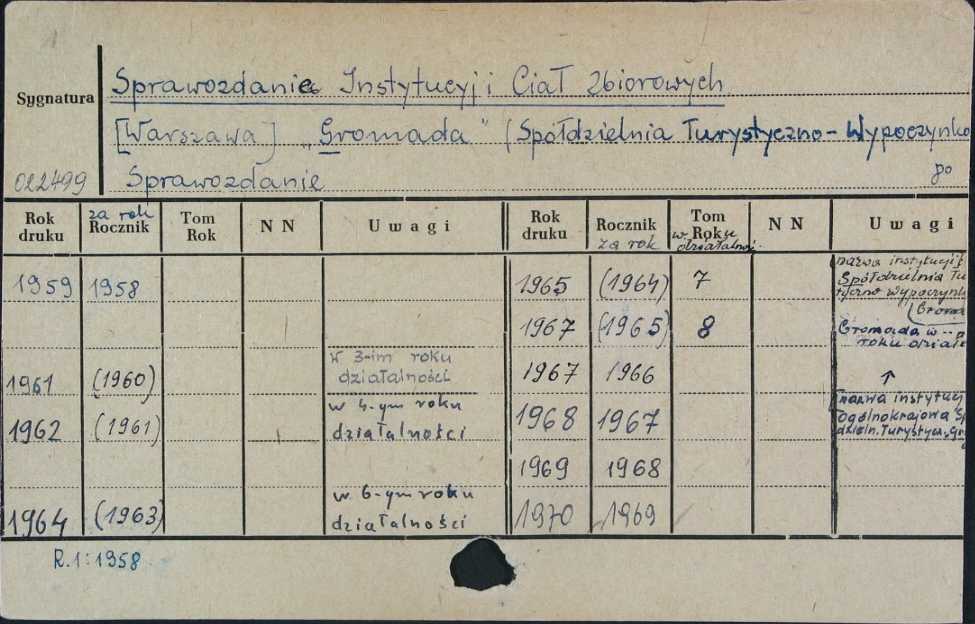 Sprawozdanie Instytucyj i Ciał Zbiorowych
Sygnatura
[Warszawa] „Gromada" (Spółdzielnia Turystyczno-Wypoczynko
022499
Sprawozdanie
po
Rok druku
za rok Rocznik
Tom Rok
N N
Uwagi
Rok druku
Rocznik za rok
Tom w Roku działalnoj.
N N
Uwagi
1959 1958
1961 (1960) w 3-im roku działalności
1962 (1961) w 4-ym roku działalności
1964 (1963) w 6-ym roku działalności
1965 (1964) 7 nazwa instytucji
Spółdzielnia Tu
ryczno wypoczynk
(Groma
1967 (1965) 8 Gromada w -- 
roku dział
1967 1966 ↑
1968 1967 nazwa instytucj
ogólnokrajowa Sp
dzieln. Turystycz. „Gro
1969 1968
1970 1969
R.1:1958